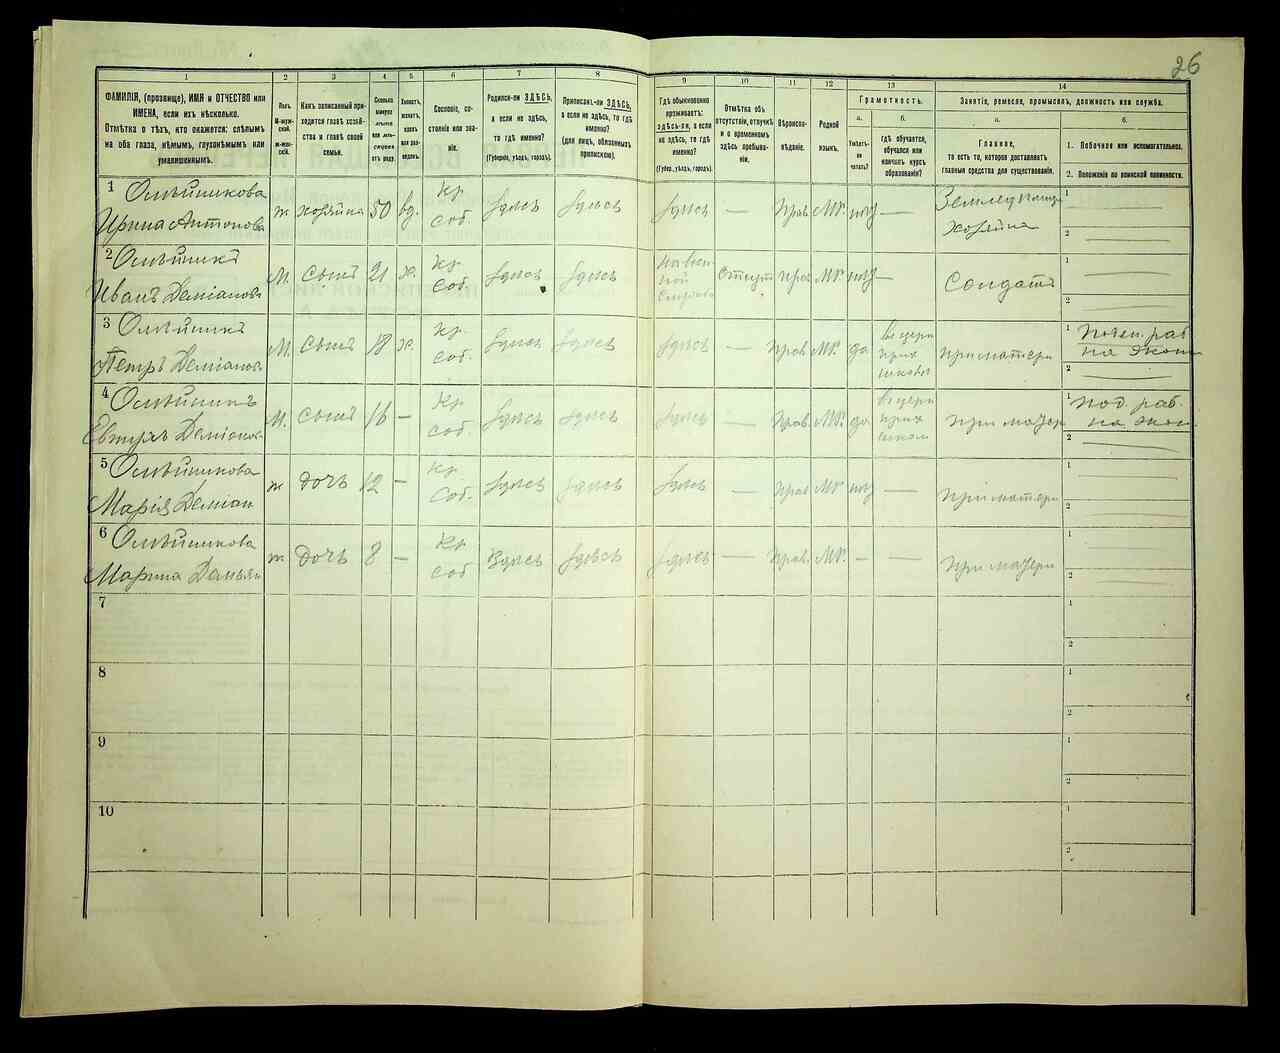 26
1
2
3
4
5
6
7
8
9
10
11
12
13
14
ФАМИЛІЯ, (прозвище), ИМЯ и ОТЧЕСТВО или
ИМЕНА, если ихъ нѣсколько.
Отмѣтка о тѣхъ, кто окажется: слѣпымъ
на оба глаза, нѣмымъ, глухонѣмымъ или
умалишеннымъ.
Полъ.
М-муж-
ской.
ж-жен-
скій.
Какъ записанный при-
ходится главѣ хозяй-
ства и главѣ своей
семьи.
Сколько
минуло
лѣтъ
или мѣ-
сяцевъ
отъ роду.
Холостъ,
женатъ,
вдовъ
или раз-
веденъ.
Сословіе, со-
стояніе или зва-
ніе.
Родился-ли ЗДѢСЬ,
а если не здѣсь,
то гдѣ именно?
(Губернія, уѣздъ, городъ).
Приписанъ-ли ЗДѢСЬ,
а если не здѣсь, то гдѣ
именно?
(для лицъ, обязанныхъ
припискою).
Гдѣ обыкновенно
проживаетъ:
здѣсь-ли, а если
не здѣсь, то гдѣ
именно?
(Губер., уѣздъ, городъ).
Отмѣтка объ
отсутствіи, отлучкѣ
и о временномъ
здѣсь пребыва-
ніи.
Вѣроиспо-
вѣданіе.
Родной
языкъ.
Грамотность.
а.
Умѣетъ-
ли
читать?
б.
гдѣ обучается,
обучался или
кончилъ курсъ
образованія?
Занятіе, ремесло, промыселъ, должность или служба.
а.
Главное,
то есть то, которое доставляетъ
главныя средства для существованія.
б.
1. Побочное или вспомогательное.
2. Положеніе по воинской повинности.
1 Олѣйникова
Ирина Антонова
ж хозяйка 50 вд. Кр. соб. здѣсь здѣсь здѣсь — Прав. Мр. нѣт —
хозяйка
1
2
2 Олѣйникъ
Иванъ Деміановъ
М. сынъ 21 х. Кр. соб. здѣсь здѣсь прав. Мр. нѣт — Солдатъ
1
2
3 Олѣйникъ
Петръ Деміановъ
М. сынъ 18 х. кр. соб. здѣсь здѣсь здѣсь — Прав. Мр. да
при матери
1
2
4 Олѣйникъ
М. сынъ 16 — Кр. соб. здѣсь здѣсь здѣсь — Прав. Мр. да
при матери
1 под. раб.
2
5 Олѣйникова
Марія Деміан
ж дочь 12 — кр. соб. здѣсь здѣсь здѣсь — Прав. Мр. нѣт — при матери
1
2
6 Олѣйникова
Марина Демьян
ж дочь 8 — Кр. соб здѣсь здѣсь здѣсь — Прав. Мр. — — при матери
1
2
7
1
2
8
1
2
9
1
2
10
1
2